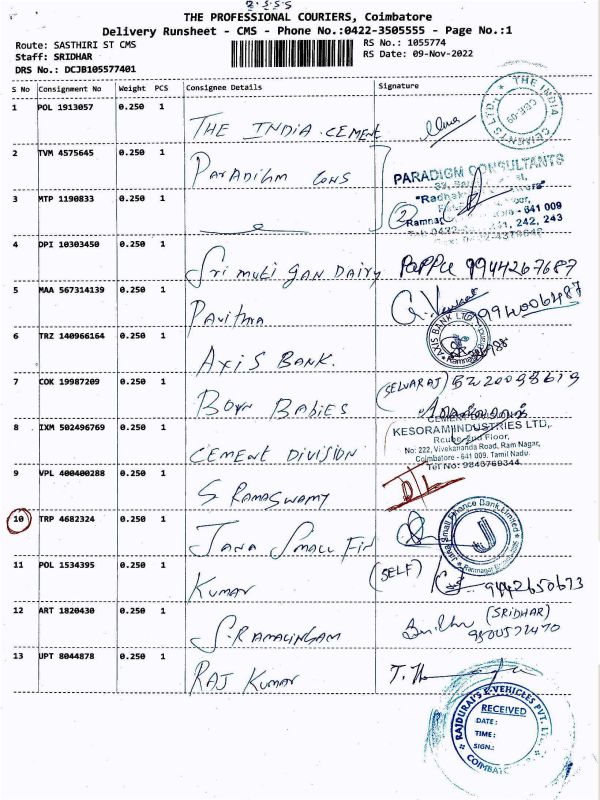 THE PROFESSIONAL COURIERS, Coimbatore
Delivery Runsheet - CMS - Phone No.:0422-3505555 - Page No.:1
Route: SASTHIRI ST CMS
RS No.: 1055774
Staff: SRIDHAR
RS Date: 09-Nov-2022
DRS No.: DCJB105577401
S No Consignment No Weight PCS Consignee Details Signature
1 POL 1913057 0.250 1 THE INDIA CEMENT
THE INDIA CEMENTS LTD.
2 TVM 4575645 0.250 1 Paradihm Cons
PARADIGM CONSULTANTS
3 MTP 1190833 0.250 1
2
641 009
242, 243
4 DPI 10303450 0.250 1 Sri muti gan Dairy Pappu 9944267687
5 MAA 567314139 0.250 1 Pavithra G. Venkat 9940006487
6 TRZ 140966164 0.250 1 AXIS BANK.
AXIS BANK LTD.
7 COK 19987209 0.250 1 Born Babies (SELVARAJ)
8 IXM 502496769 0.250 1 CEMENT DIVISION
KESORAM INDUSTRIES LTD,
2nd Floor,
No: 222, Vivekananda Road, Ram Nagar,
Coimbatore - 641 009. Tamil Nadu.
Tel No: 9843769344
9 VPL 400400288 0.250 1 S RAMASWAMY D/L
10 TRP 4682324 0.250 1 JANA SMALL FIN
Jana Small Finance Bank Limited
Ramnagar
11 POL 1534395 0.250 1 KUMAR (SELF) 9442650673
12 ART 1820430 0.250 1 S. RAMALINGAM (SRIDHAR)
13 UPT 8044878 0.250 1 RAJ KUMAR
RAJDURAI'S E-VEHICLES PVT. LTD.
RECEIVED
DATE :
TIME :
SIGN.: